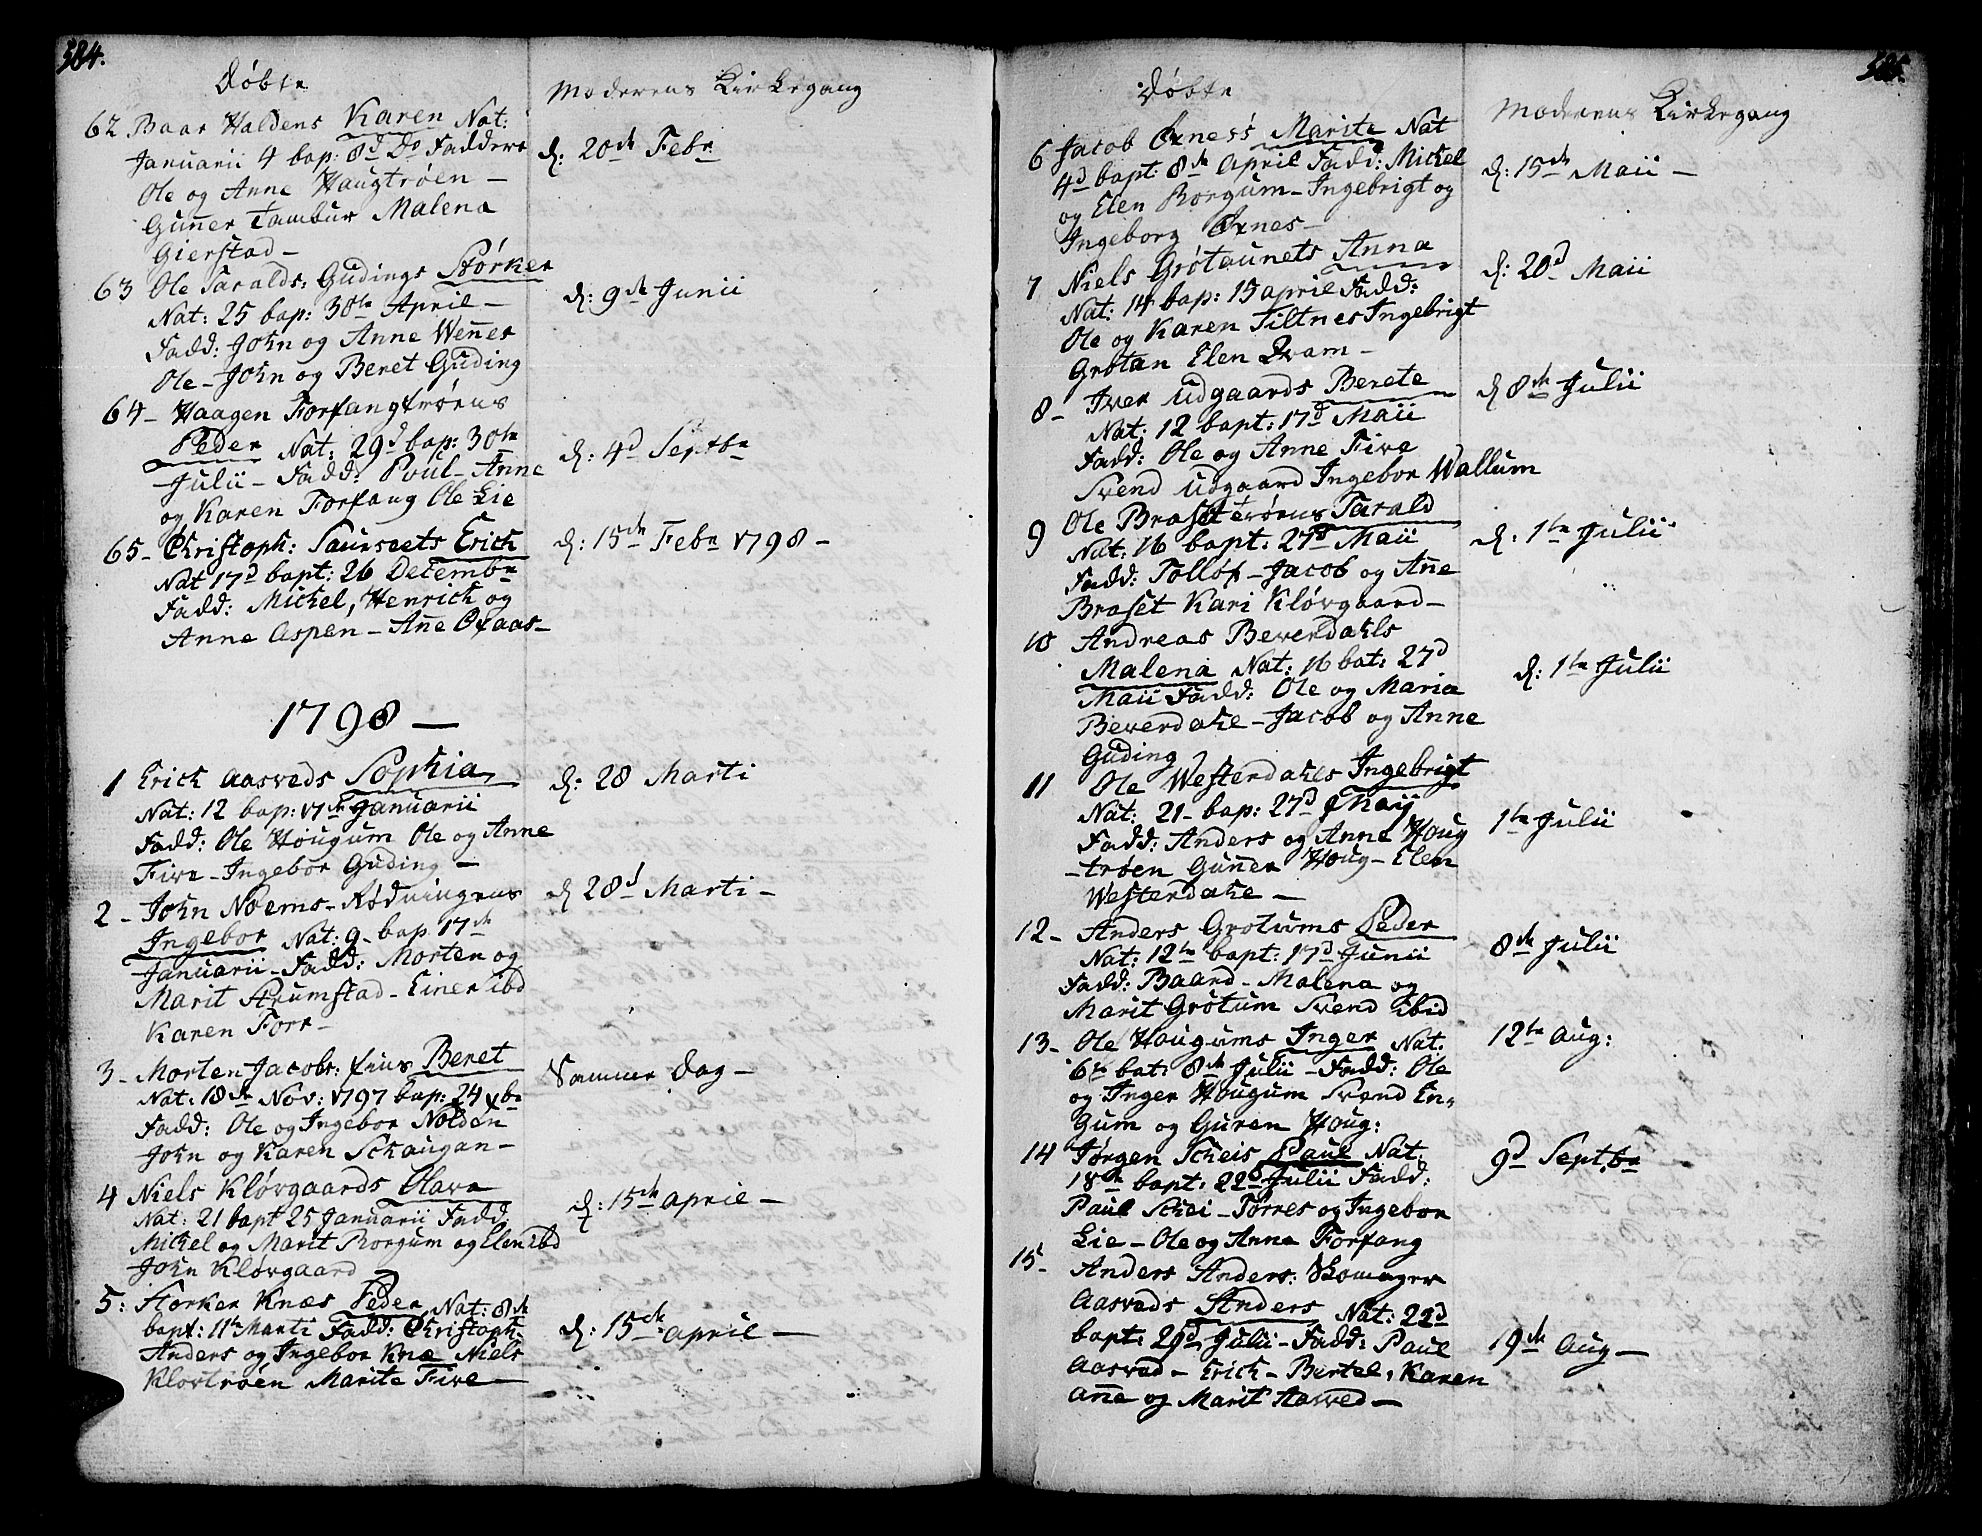 384.
Døbte
Moderens Kirkegang
62 Baar Haldens Karen Nat:
Januarii 4 bap: 8d Do Faddere
Ole og Anne Haugtrøen –
Guñer Tambur Malena
Gierstad –
d: 20de Febr
63 Ole Taralds: Gudings Størker
Nat: 25 bap: 30te April –
Fadd: John og Anne Weñes
Ole – John og Beret Guding
d: 9de Junii
64 – Haagen Forfangtrøens
Peder Nat: 29d bap: 30te
Julii – Fadd: Poul – Anne
og Karen Forfang Ole Lie
d: 4d Septbr
65 – Christoph: Saurseets Erich
Nat 17d bapt: 26 Decembr
Fadd: Michel, Henrich og
Anne Aspen – Añe Oxaas –
d: 15de Febr 1798 –
1798 –
1 Erich Aasveds Sophia
Nat: 12 bap: 17de Januarii
Fadd: Ole Hougum Ole og Anne
Five – Ingebor Guding –
d: 28 Marti
2 – John Noems – Rødningens
Ingebor Nat: 9 – bap 17de
Januarii – Fadd: Morten og
Marit Strumstad – Einer ibd
Karen Forr –
d 28d Marti –
3 – Morten Jacobs: fius Beret
Nat: 18de Nov: 1797 bap: 24 xbr
Fadd: Ole og Ingebor Nolden
John og Karen Schaugan –
Samme Dag –
4 Niels Kløvgaards Olava
Nat: 21 bapt 25 Januarii Fadd
Michel og Marit Rorgum og Elen ibd
John Kløvgaard
d: 15de April –
5: Størker Knæs Peder Nat: 8de
bapt: 11te Marti Fadd: Christoph
Anders og Ingebor Knæ Niels
Klostrøen Marite Five –
d: 15de April –
385.
Døbte
Moderens Kirkegang
6 Jacob Øxnes's Marite Nat
4d bapt: 8de April Fadd: Michel
og Elen Rorgum – Ingebrigt og
Ingeborg Øxnes –
d: 15de Maii –
7 Niels Grøtaunets Anna
Nat: 14 bap: 15 April Fadd:
Ole og Karen Tiltnes Ingebrigt
Grøtan Elen Qvam –
d: 20d Maii
8 – Iver Udgaards Berete
Nat: 12 bapt: 17d Maii
Fadd: Ole og Anne Five
Svend Udgaard Ingebor Wallum
d 8de Julii
9 Ole Brasettrøens Tarald
Nat: 16 bapt: 27d Maii
Fadd: Talløf – Jacob og Añe
Braset Kari Kløvgaard –
d: 1te Julii
10 Andreas Beverdahls
Malena Nat: 16 bat: 27d
Maii Fadd: Ole og Maria
Beverdahl – Jacob og Anne
Guding
d: 1te Julii
11 Ole Westerdahls Ingebrigt
Nat: 21 – bap: 27d Maij
Fadd: Anders og Anne Houg
– trøen Guñer Houg – Elen
Westerdahl –
1te Julii
12 – Anders Grotums Peder
Nat: 12te bapt: 17d Junii
Fadd: Baard – Malena og
Marit Grøtum Svend ibid
8de Julii
13 – Ole Hougums Inger Nat:
6te bat: 8de Julii – Fadd: Ole
og Inger Hougum Svend En,
gum og Guren Houg:
12te Aug:
14 Jørgen Scheis Paul Nat:
18de bapt: 22d Julii Fadd:
Paul Schei – Torres og Ingebor
Lie – Ole og Anna Forfang
9d Septbr
15 – Anders Anders: Skomager
Aasveds Anders Nat: 22d
bapt: 29d Julii – Fadd: Paul
Aasved – Erich – Bertel, Karen
Añe og Marit Aasved –
19de Aug –